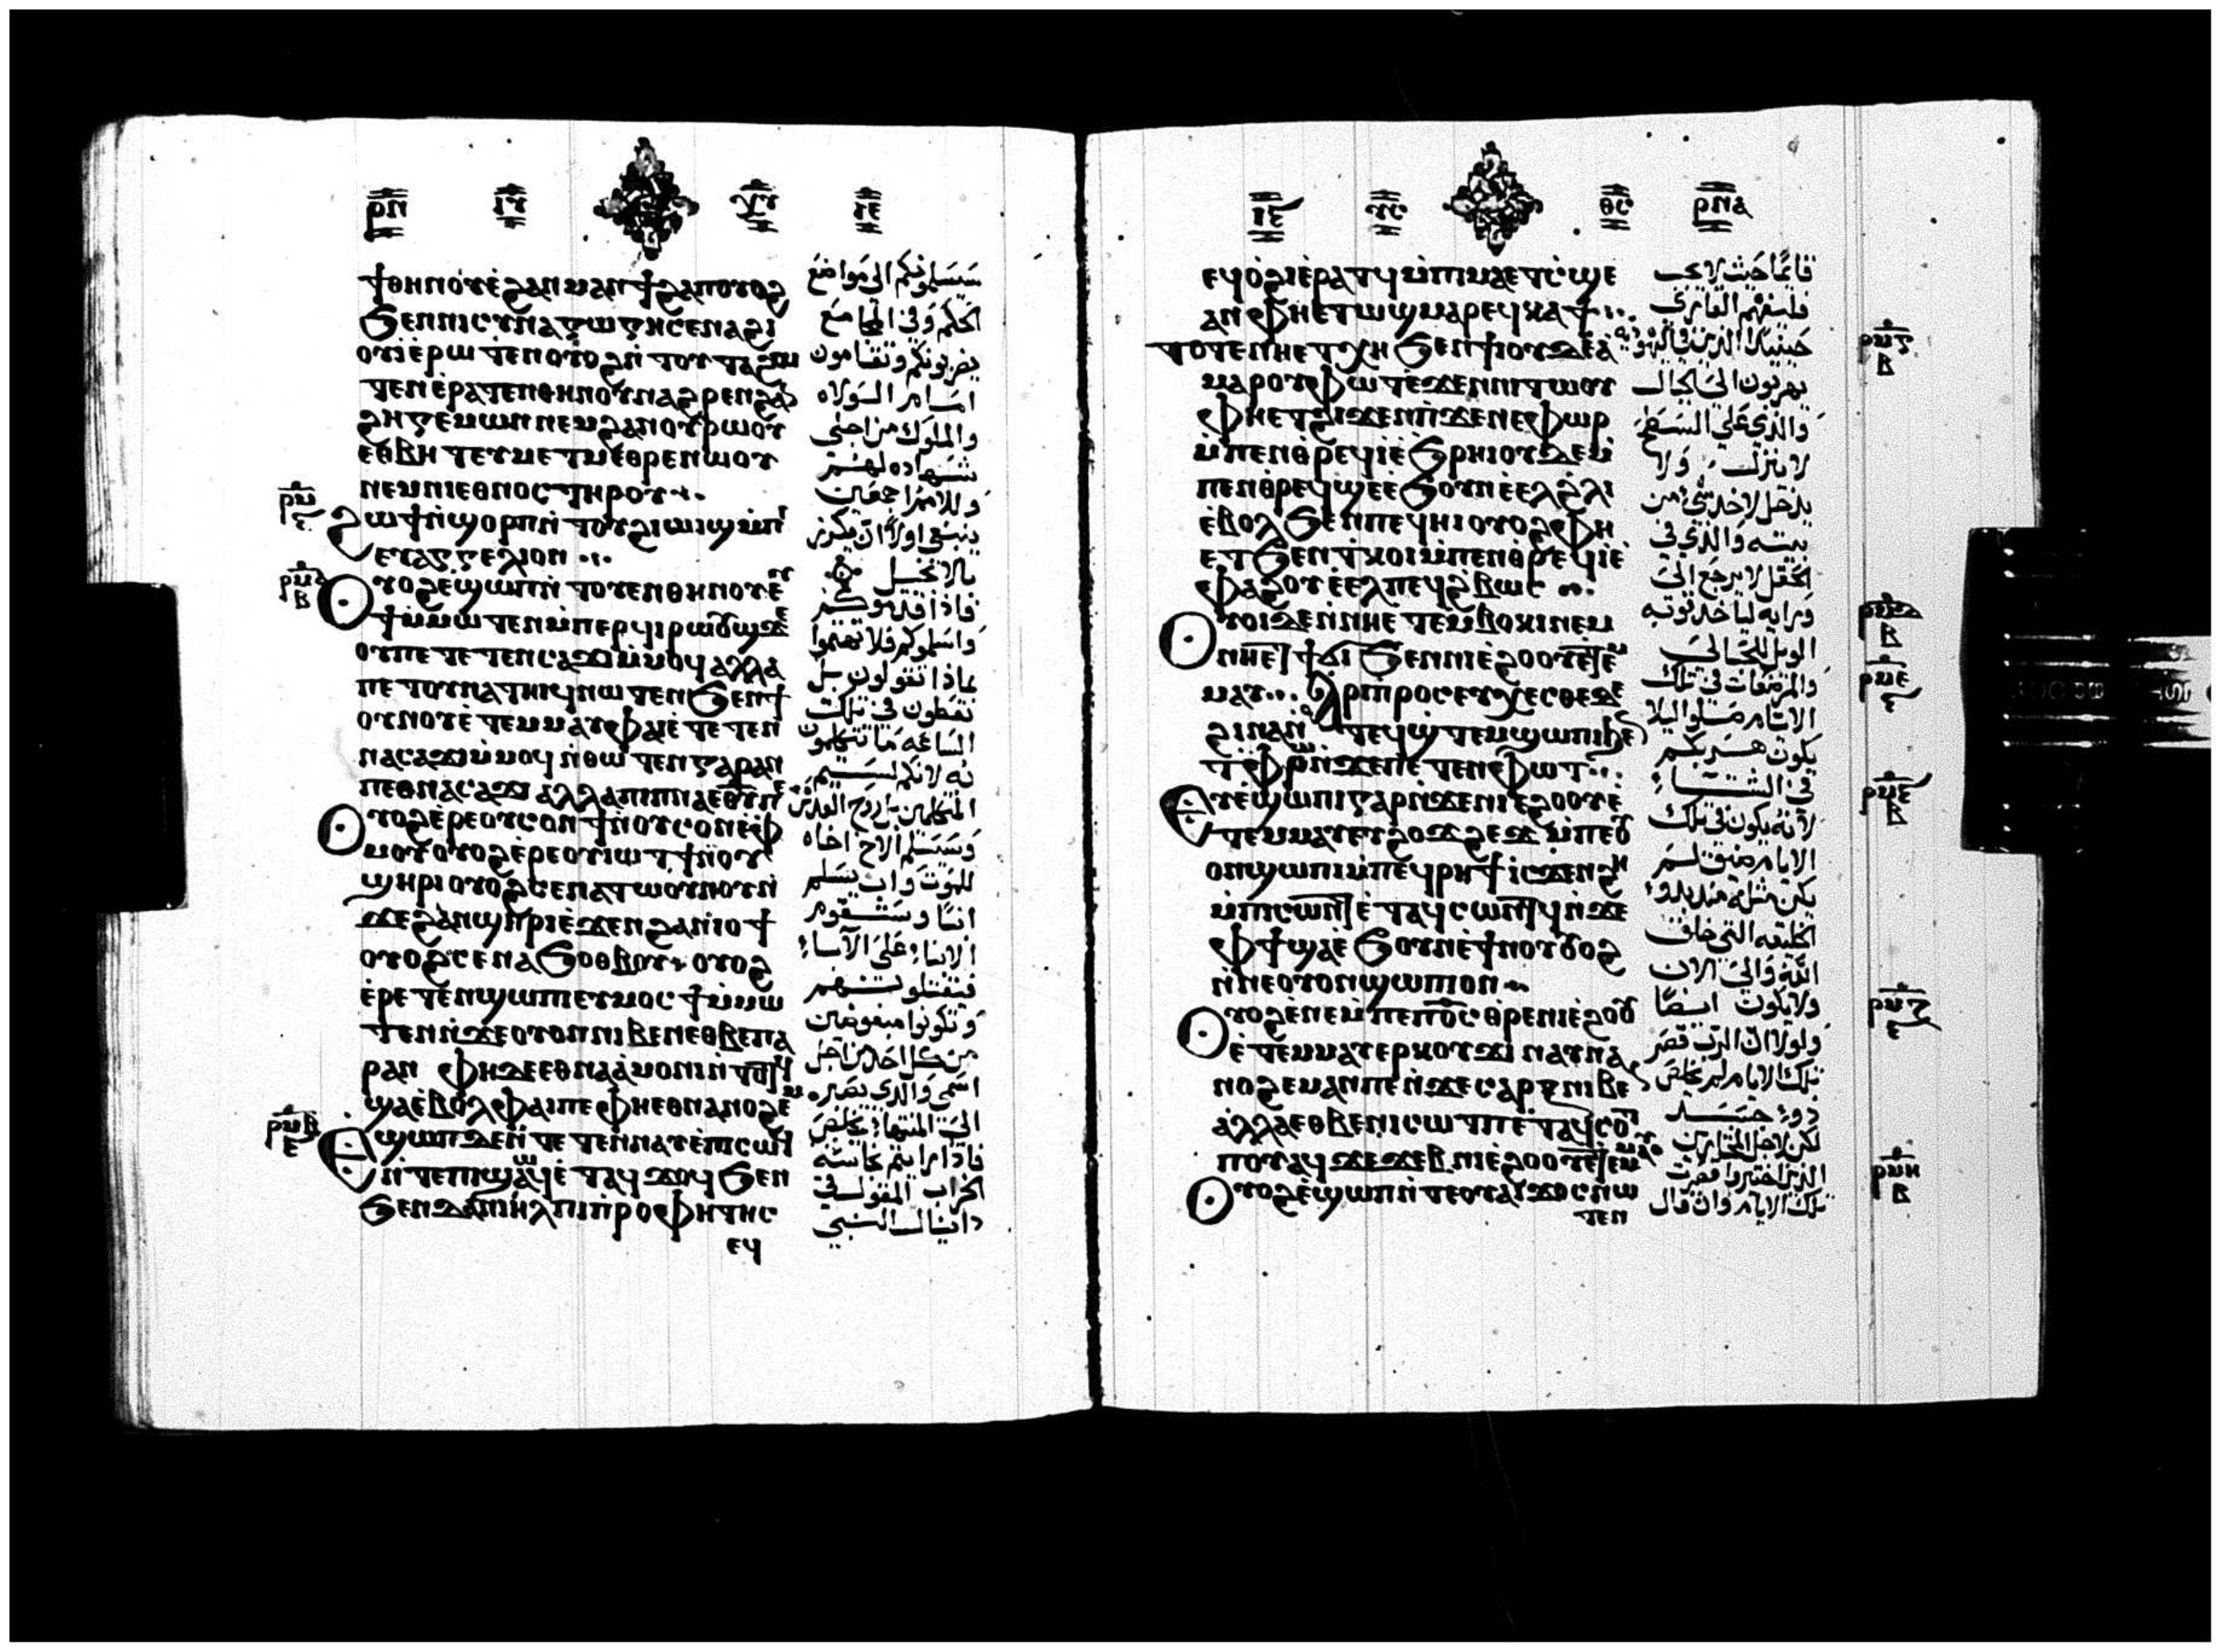 ⲣⲛ
ϯⲑⲏⲛⲟⲩ ⲉϩⲁⲛⲙⲁⲛϯϩⲁⲡ ⲟⲩⲟϩ
ϧⲉⲛⲛⲓⲥⲩⲛⲁⲅⲱⲅⲏ ⲥⲉⲛⲁϩⲓ
ⲟⲩⲓ ⲉⲣⲱⲧⲉⲛ ⲟⲩⲟϩ ⲛⲧⲟⲩⲧⲁϩⲱ
ⲧⲉⲛ ⲉⲣⲁⲧⲉⲛⲑⲏⲛⲟⲩ ⲛⲁϩⲣⲉⲛϩⲁⲛ
ϩⲏⲅⲉⲙⲱⲛ ⲛⲉⲙϩⲁⲛⲟⲩⲣⲱⲟⲩ
ⲉⲑⲃⲏⲧ ⲉⲩⲙⲉⲧⲙⲉⲑⲣⲉ ⲛⲱⲟⲩ
ⲛⲉⲙⲛⲓⲉⲑⲛⲟⲥ ⲧⲏⲣⲟⲩ
ϩⲱϯ ⲛϣⲟⲣⲡ ⲛⲧⲟⲩϩⲓⲱⲓϣ ⲙⲡⲓ
ⲉⲩⲁⲅⲅⲉⲗⲓⲟⲛ
ⲟⲩⲟϩ ⲉϣⲱⲡ ⲛⲧⲟⲩⲉⲛⲑⲏⲛⲟⲩ ⲉⲩ
ϯ ⲙⲙⲱⲧⲉⲛ ⲙⲡⲉⲣϥⲓⲣⲱⲟⲩϣ ϫⲉ
ⲟⲩ ⲡⲉⲧⲉⲧⲉⲛⲥⲁϫⲓ ⲙⲙⲟϥ ⲁⲗⲗⲁ
ⲡⲉⲧⲟⲩⲛⲁⲧⲏⲓϥ ⲛⲱⲧⲉⲛ ϧⲉⲛϯ
ⲟⲩⲛⲟⲩ ⲉⲧⲉⲙⲙⲁⲩ ⲫⲁⲓ ⲉⲧⲉⲧⲉⲛ
ⲛⲁⲥⲁϫⲓ ⲙⲙⲟϥ ⲛⲑⲱⲧⲉⲛ ⲅⲁⲣ ⲁⲛ
ⲡⲉⲑⲛⲁⲥⲁϫⲓ ⲁⲗⲗⲁ ⲡⲓⲡⲛⲁ ⲉⲑⲩ ⲡⲉ
ⲟⲩⲟϩ ⲉⲣⲉⲟⲩⲥⲟⲛ ϯ ⲛⲟⲩⲥⲟⲛ ⲉⲫ
ⲙⲟⲩ ⲟⲩⲟϩ ⲉⲣⲉⲟⲩⲓⲱⲧ ϯ ⲛⲟⲩ
ϣⲏⲣⲓ ⲟⲩⲟϩ ⲥⲉⲛⲁⲧⲱⲟⲩⲛⲟⲩ ⲛ
ϫⲉϩⲁⲛϣⲏⲣⲓ ⲉϫⲉⲛϩⲁⲛⲓⲟϯ
ⲟⲩⲟϩ ⲥⲉⲛⲁϧⲟⲑⲃⲟⲩ ⲟⲩⲟϩ
ⲉⲣⲉⲧⲉⲛϣⲱⲡ ⲉⲩⲙⲟⲥϯ ⲙⲙⲱ
ⲧⲉⲛ ⲛϫⲉⲟⲩⲟⲛ ⲛⲓⲃⲉⲛ ⲉⲑⲃⲉⲡⲁ
ⲣⲁⲛ ⲫⲏ ⲇⲉ ⲉⲑⲛⲁⲁⲙⲟⲛⲓ ⲛⲧⲟⲧϥ
ϣⲁⲉⲃⲟⲗ ⲫⲁⲓ ⲡⲉ ⲫⲏ ⲉⲑⲛⲁⲛⲟϩⲉⲙ
ⲉϣⲱⲡ ⲇⲉ ⲛⲧⲉⲧⲉⲛⲛⲁⲩ ⲉⲡⲓⲥⲱϥ
ⲛⲧⲉⲡϣⲱϥ ⲉⲧⲁϥϫⲟϥ ϧⲉⲛ
ϧⲉⲛⲇⲁⲛⲓⲏⲗ ⲡⲓⲡⲣⲟⲫⲏⲧⲏⲥ
ⲉϥ
سيسلمونكم الى مواضع
الحكم وفي المجامع
يضربونكم وتقامون
امام الولاه
والملوك من اجلى
شهاده لهم
وللامم اجمعين
ينبغي اولا ان يكرز
بالانجيل
فاذا قدموكم
واسلموكم فلا تهتموا
بماذا تقولون بل
تعطون في تلك
الساعه ما تتكلمون
به لانكم لستم
المتكلمين بل روح القدس
وسيسلم الاخ اخاه
للموت واب يسلم
ابنا وستقوم
الابناء على الاباء
فتقتلونهم
وتكونوا مبغوضين
من كل احد من اجل
اسمى والذى يصبر
الى المنتهاء يخلص
فاذا رايتم نجاسه
الخراب المقول في
دانيال النبي
ⲣⲛⲁ
ⲉϥⲟϩⲓ ⲉⲣⲁⲧϥ ⲙⲡⲓⲙⲁ ⲉⲧⲥϣⲉ
ⲁⲛ ⲫⲏ ⲉⲧⲱϣ ⲙⲁⲣⲉϥⲕⲁϯ
ⲧⲟⲧⲉ ⲛⲏ ⲉⲧⲭⲏ ϧⲉⲛϯⲟⲩⲇⲉⲁ
ⲙⲁⲣⲟⲩⲫⲱⲧ ⲉϫⲉⲛⲛⲓⲧⲱⲟⲩ
ⲫⲏ ⲉⲧϩⲓϫⲉⲛⲡⲓϫⲉⲛⲉⲫⲱⲣ
ⲙⲡⲉⲛⲑⲣⲉϥⲓ ⲉϧⲣⲏⲓ ⲟⲩⲇⲉ ⲙ
ⲡⲉⲛⲑⲣⲉϥϣⲉ ⲉϧⲟⲩⲛ ⲉⲉⲗϩⲗⲓ
ⲉⲃⲟⲗ ϧⲉⲛⲡⲉϥⲏⲓ ⲟⲩⲟϩ ⲫⲏ
ⲉⲧϧⲉⲛⲧⲕⲟⲓ ⲙⲡⲉⲛⲑⲣⲉϥⲓ ⲉ
ⲫⲁϩⲟⲩ ⲉⲉⲗⲡⲉϥϩⲃⲱⲥ
ⲟⲩⲟⲓ ⲇⲉ ⲛⲛⲏ ⲉⲧⲉⲙⲃⲟⲕⲓ ⲛⲉⲙ
ⲛⲏ ⲉⲧϯϭⲓ ϧⲉⲛⲛⲓⲉϩⲟⲟⲩ ⲉⲧⲉⲙ
ⲙⲁⲩ ⲁⲣⲓⲡⲣⲟⲥⲉⲩⲭⲉⲥⲑⲉ ϫⲉ
ϩⲓⲛⲁ ⲛⲧⲉϥϣⲧⲉⲙϣⲱⲡⲓ ϧⲉⲛ
ⲧⲫⲣⲱ ⲛϫⲉⲡⲉⲧⲉⲛⲫⲱⲧ
ⲉⲩⲉϣⲱⲡⲓ ⲅⲁⲣ ⲛϫⲉⲛⲓⲉϩⲟⲟⲩ ⲉ
ⲧⲉⲙⲙⲁⲩ ⲉⲩϩⲟϫϩⲉϫ ⲙⲡⲉⲟⲩ
ⲟⲛ ϣⲱⲡⲓ ⲙⲡⲉϥⲣⲏϯ ⲓⲥϫⲉⲛϩⲏ
ⲙⲡⲓⲥⲱⲛⲧ ⲉⲧⲁϥⲥⲱⲛⲧϥ ⲛϫⲉ
ⲫϯ ϣⲁⲉϧⲟⲩⲛ ⲉϯⲛⲟⲩ ⲟⲩⲟϩ
ⲛⲛⲉⲟⲩⲟⲛ ϣⲱⲡⲓ ⲟⲛ
ⲟⲩⲟϩ ⲉⲛⲉ ⲙⲡⲉⲡϭⲥ ⲑⲣⲉⲛⲓⲉϩⲟⲟⲩ
ⲉⲧⲉⲙⲙⲁⲩ ⲉⲣⲕⲟⲩϫⲓ ⲛⲁⲩⲛⲁ
ⲛⲟϩⲉⲙ ⲁⲛ ⲡⲉ ⲛϫⲉⲥⲁⲣⲝ ⲛⲓⲃⲉⲛ
ⲁⲗⲗⲁ ⲉⲑⲃⲉⲛⲓⲥⲱⲧⲡ ⲉⲧⲁϥⲥⲟⲧ
ⲡⲟⲩ ⲁϥϫⲉϫⲉⲃ ⲛⲓⲉϩⲟⲟⲩ ⲉⲧⲉⲙⲙⲁⲩ
ⲟⲩⲟϩ ⲉϣⲱⲡ ⲛⲧⲉⲟⲩⲁⲓ ϫⲟⲥ ⲛⲱ
ⲧⲉⲛ
قايما حيث لا يجب
فليفهم القارى
حينئذ الذين في اليهوديه
يهربون الى الجبال
والذى على السطح
لا ينزل ولا
يدخل لاخذ شى من
بيته والذى في
الحقل لا يرجع الى
ورايه لياخذ ثوبه
الويل للحبالى
والمرضعات في تلك
الايام صلوا ليلا
يكون هربكم
في الشتاء
لانه يكون في تلك
الايام ضيق لم
يكن مثله منذ بدو
الخليقه التى خلق
الله والى الان
ولا يكون ايضا
ولولا ان الرب قصر
تلك الايام لم يخلص
ذو جسد
لكن لاجل المختارين
الذين اختيروا قصرت
تلك الايام وان قال